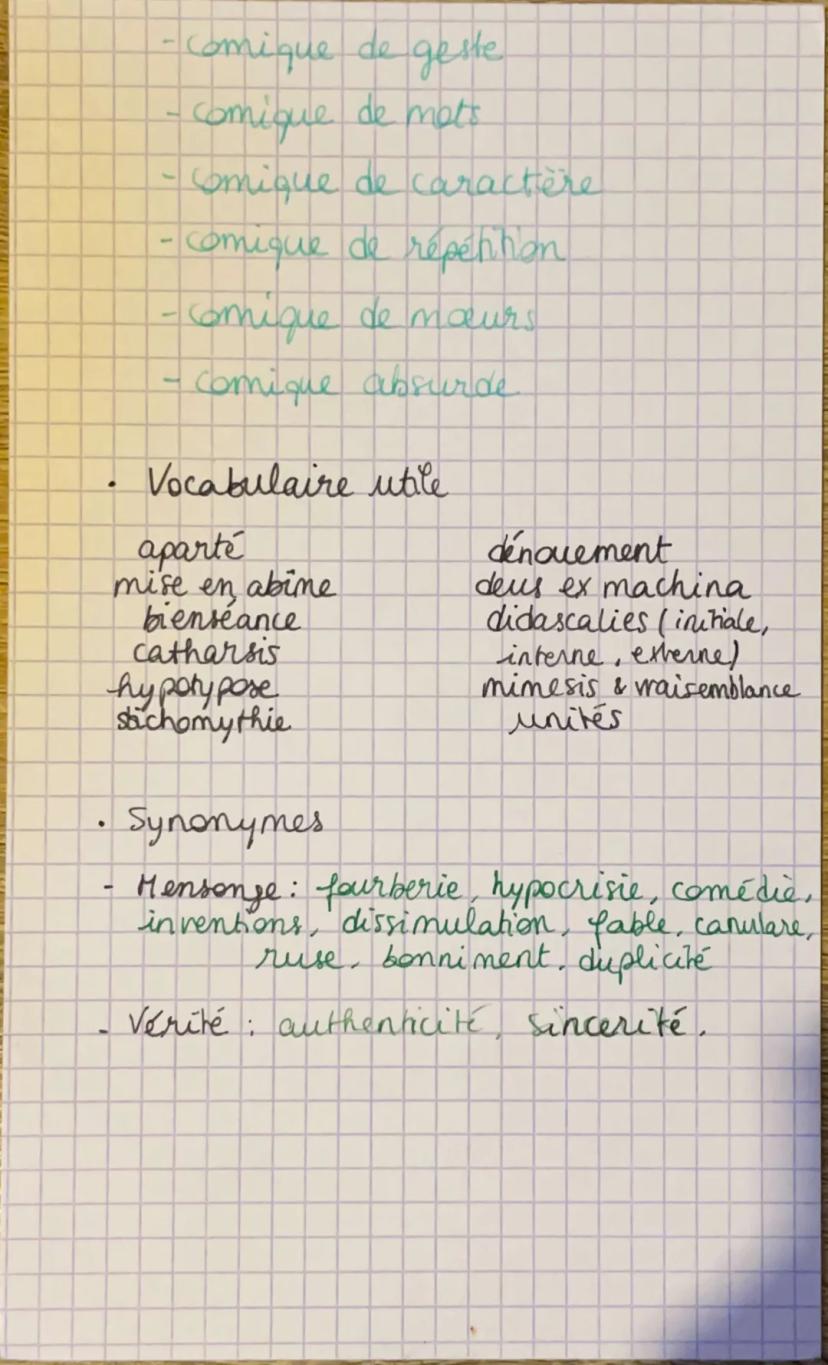 - comique de geste
- comique de mots
- comique de caractère
- comique de répétition
- comique de mœurs
- comique absurde
• Vocabulaire utile
aparté dénouement
mise en abîme deus ex machina
bienséance didascalies (initiale,
catharsis interne, externe)
hypotypose mimesis & vraisemblance
stichomythie unités
• Synonymes
- Mensonge : fourberie, hypocrisie, comédie,
inventions, dissimulation, fable, canulare,
ruse, bonniment, duplicité
- Vérité : authenticité, sincerité.